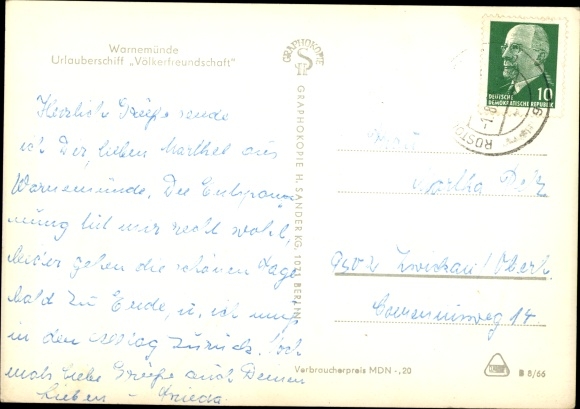 Warnemünde
Urlauberschiff „Völkerfreundschaft"
GRAPHOKOPIE
GRAPHOKOPIE H. SANDER KG, 1071 BERLIN
10
DEUTSCHE
DEMOKRATISCHE REPUBLIK
ROSTOCK
Herzliche Grüße sende
ich Dir, lieben Marthel aus
Warnemünde. Die Entspan-
nung tut mir recht wohl,
leider gehen die schönen Tage
bald zu Ende, u. ich muß
in den Alltag zurück. Noch
mals liebe Grüße auch Deinen
Lieben - Frieda.
Frau
Martha
9502 Zwickau/Oberh.
Comeniusweg 14
Verbraucherpreis MDN -,20
8/66